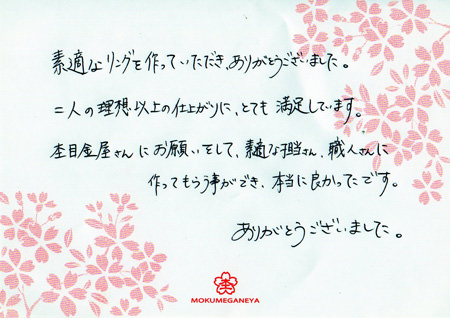 素適なリングを作っていただき、ありがとうございました。
二人の理想以上の仕上がりに、とても満足しています。
杢目金屋さんにお願いをして、素適な担当さん、職人さんに
作ってもらう事ができ、本当に良かったです。
ありがとうございました。
杢
MOKUMEGANEYA